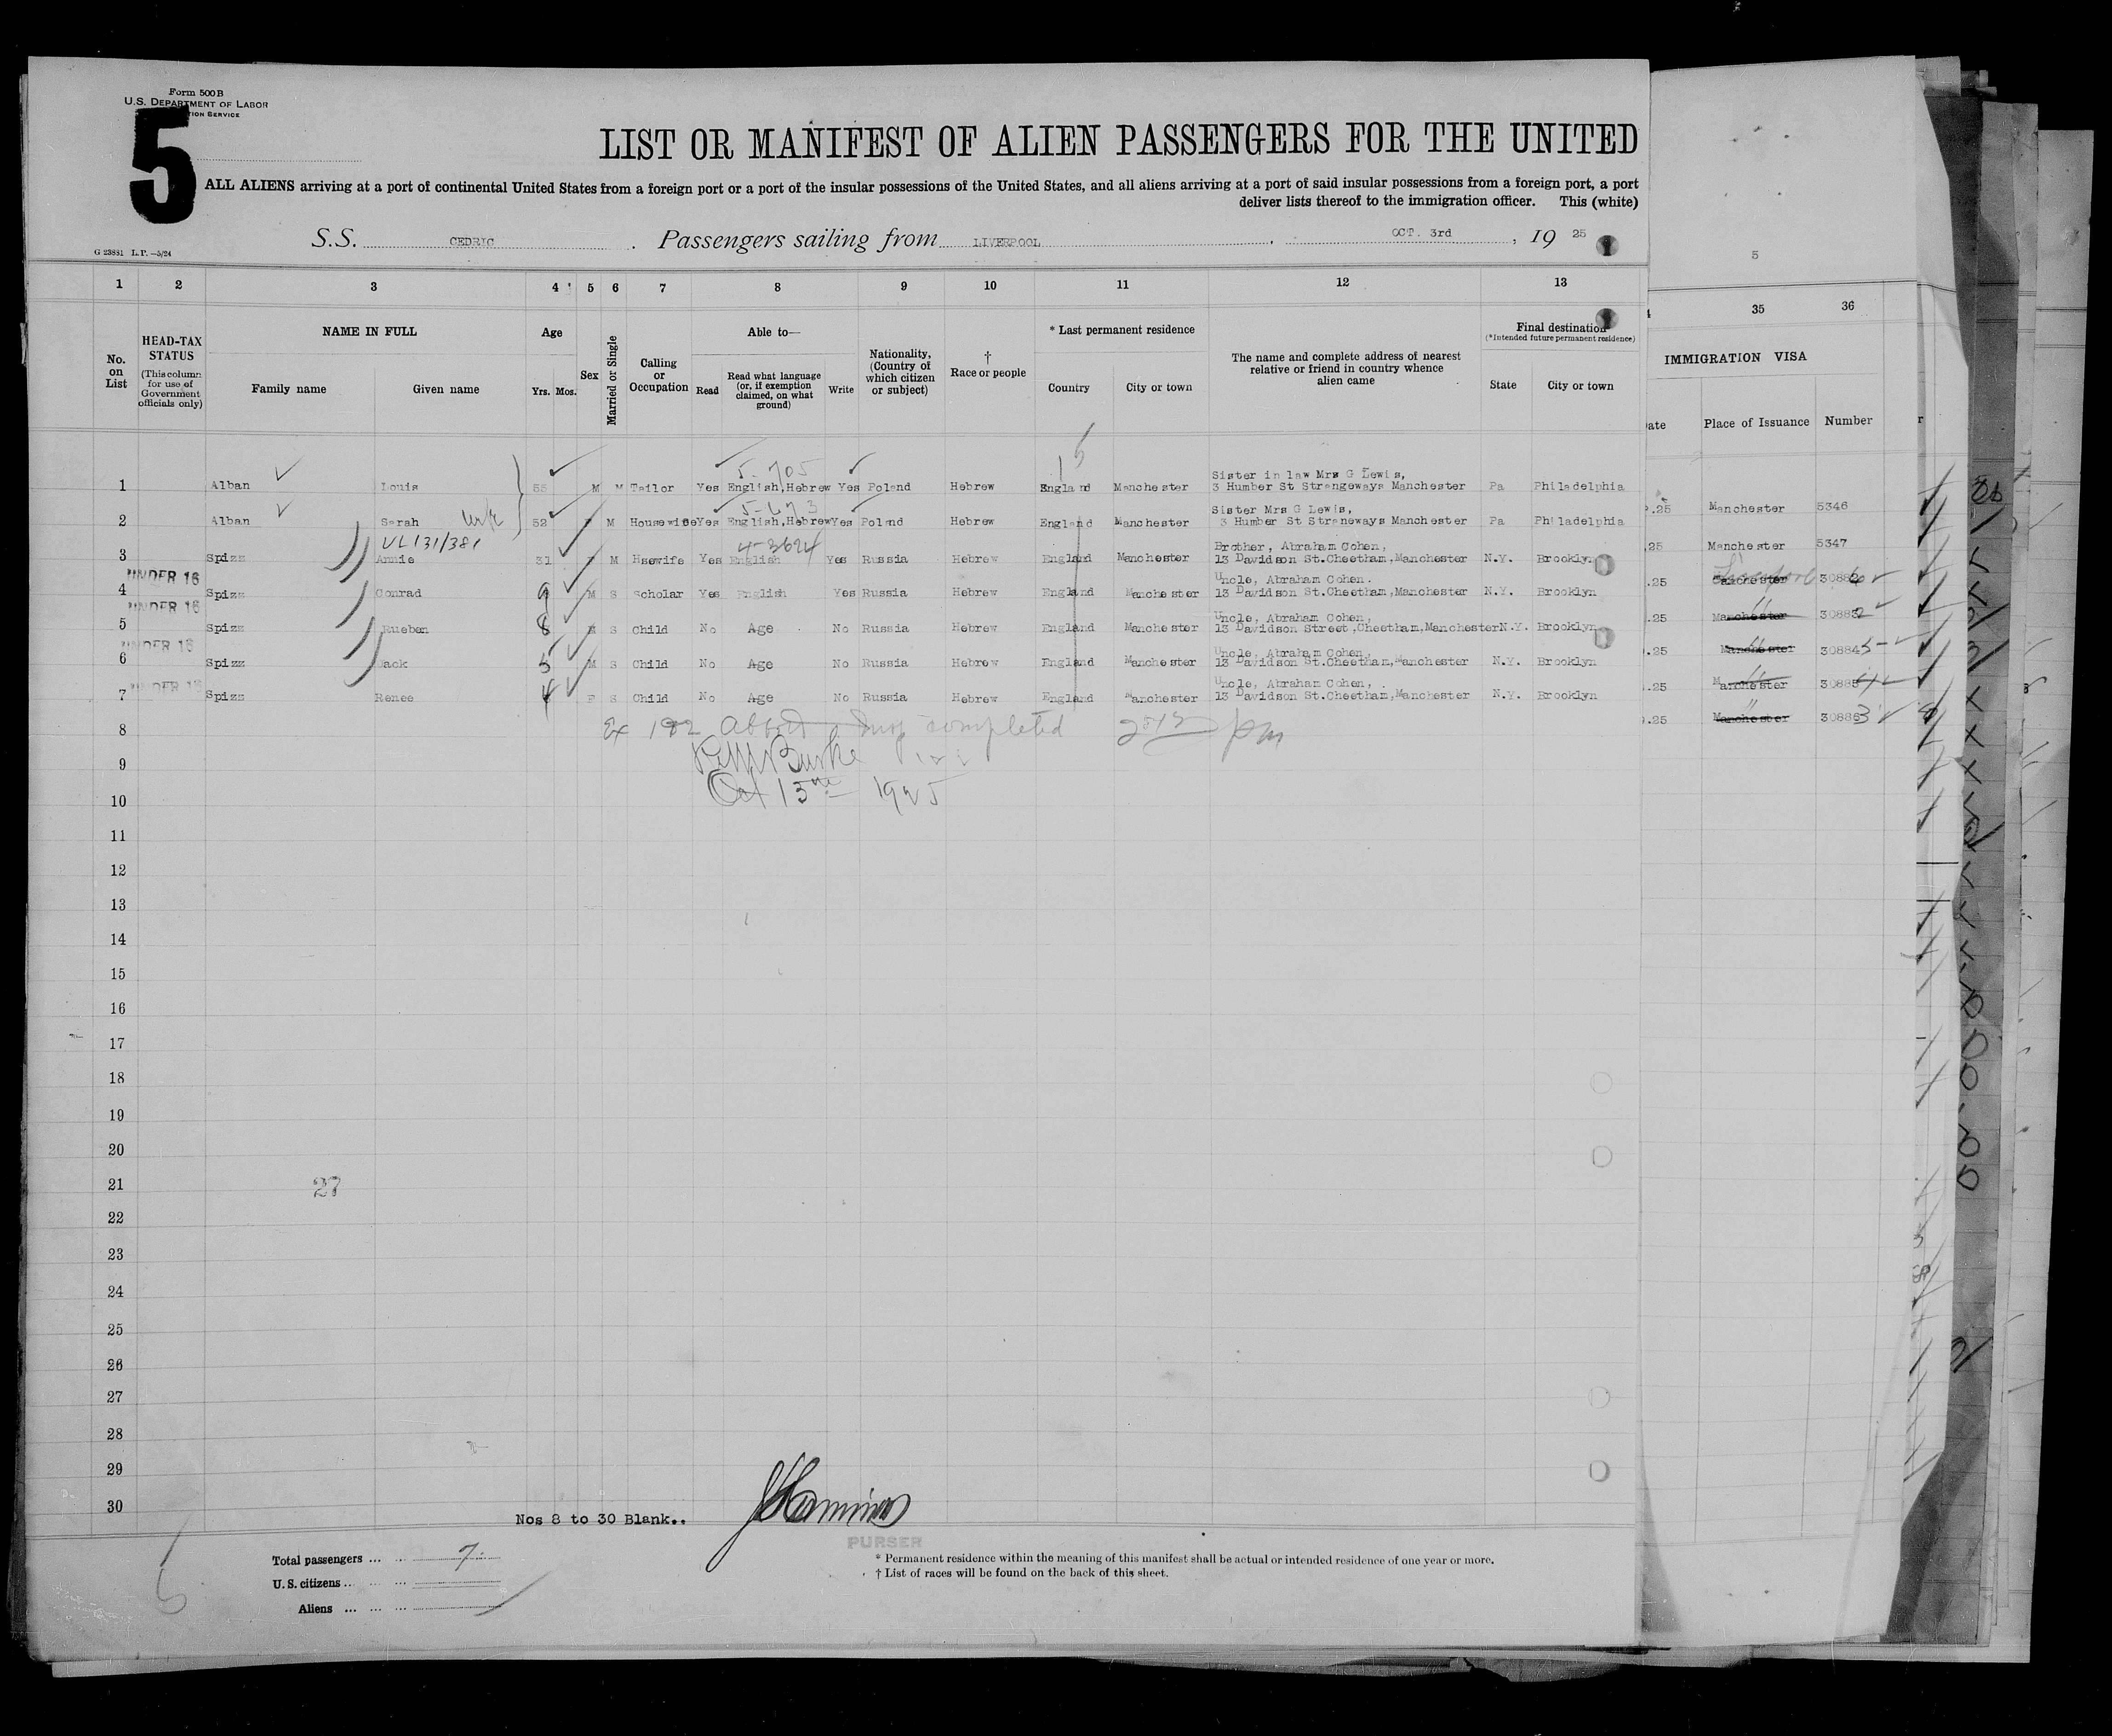 Form 500 B
U.S. DEPARTMENT OF LABOR
TION SERVICE
5
LIST OR MANIFEST OF ALIEN PASSENGERS FOR THE UNITED
ALL ALIENS arriving at a port of continental United States from a foreign port or a port of the insular possessions of the United States, and all aliens arriving at a port of said insular possessions from a foreign port, a port
deliver lists thereof to the immigration officer. This (white)
S.S. CEDRIC. Passengers sailing from LIVERPOOL, OCT. 3rd, 19 25
G 23881 L.P.—5/24
5
1 2 3 4 5 6 7 8 9 10 11 12 13 35 36
No. on List
HEAD-TAX STATUS
(This column for use of Government officials only)
NAME IN FULL
Family name
Given name
Age
Yrs. Mos.
Sex
Married or Single
Calling or Occupation
Able to—
Read
Read what language (or, if exemption claimed, on what ground)
Write
Nationality, (Country of which citizen or subject)
† Race or people
* Last permanent residence
Country
City or town
The name and complete address of nearest relative or friend in country whence alien came
Final destination
(*Intended future permanent residence)
State
City or town
IMMIGRATION VISA
ate
Place of Issuance
Number
5-705
Sister in law Mrs G Lewis,
1 Alban Louis 55 M M Tailor Yes English,Hebrew Yes Poland Hebrew England Manchester 3 Humber St Strangeways Manchester Pa Philadelphia .25 Manchester 5346
5-673
Sister Mrs G Lewis,
2 Alban Sarah wife 52 F M Housewife Yes English,Hebrew Yes Poland Hebrew England Manchester 3 Humber St Straneways Manchester Pa Philadelphia .25 Manchester 5347
VL 131/381
4-3624
Brother, Abraham Cohen,
3 Spizz Annie 31 F M Hsewife Yes English Yes Russia Hebrew England Manchester 13 Davidson St.Cheetham,Manchester N.Y. Brooklyn .25 Manchester Liverpool
UNDER 16
Uncle, Abraham Cohen.
4 Spizz Conrad 9 M S Scholar Yes English Yes Russia Hebrew England Manchester 13 Davidson St.Cheetham,Manchester N.Y. Brooklyn .25 Manchester "
UNDER 16
Uncle, Abraham Cohen,
5 Spizz Rueben 8 M S Child No Age No Russia Hebrew England Manchester 13 Davidson Street,Cheetham,Manchester N.Y. Brooklyn .25 Manchester "
UNDER 16
Uncle, Abraham Cohen,
6 Spizz Jack 5 M S Child No Age No Russia Hebrew England Manchester 13 Davidson St.Cheetham,Manchester N.Y. Brooklyn .25 Manchester "
UNDER 16
Uncle, Abraham Cohen,
7 Spizz Renee 4 F S Child No Age No Russia Hebrew England Manchester 13 Davidson St.Cheetham,Manchester N.Y. Brooklyn .25 Manchester "
8 completed pm
9 Burke
10 Oct 13 1925
11
12
13
14
15
16
17
18
19
20
21 27
22
23
24
25
26
27
28
29
30
Nos 8 to 30 Blank..
PURSER
Total passengers ... ... 7.
U.S. citizens ... ... ...
Aliens ... ... ...
* Permanent residence within the meaning of this manifest shall be actual or intended residence of one year or more.
† List of races will be found on the back of this sheet.